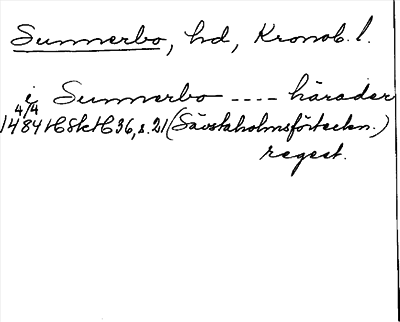 Sunnerbo, hd, Kronob. l.
i Sunnerbo ---- härader
4/4
1484 HSkH 36, s. 21 (Säfstaholmsförteckn.)
regest.